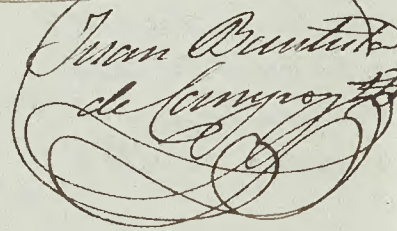 Juan Bautista
de Campos y